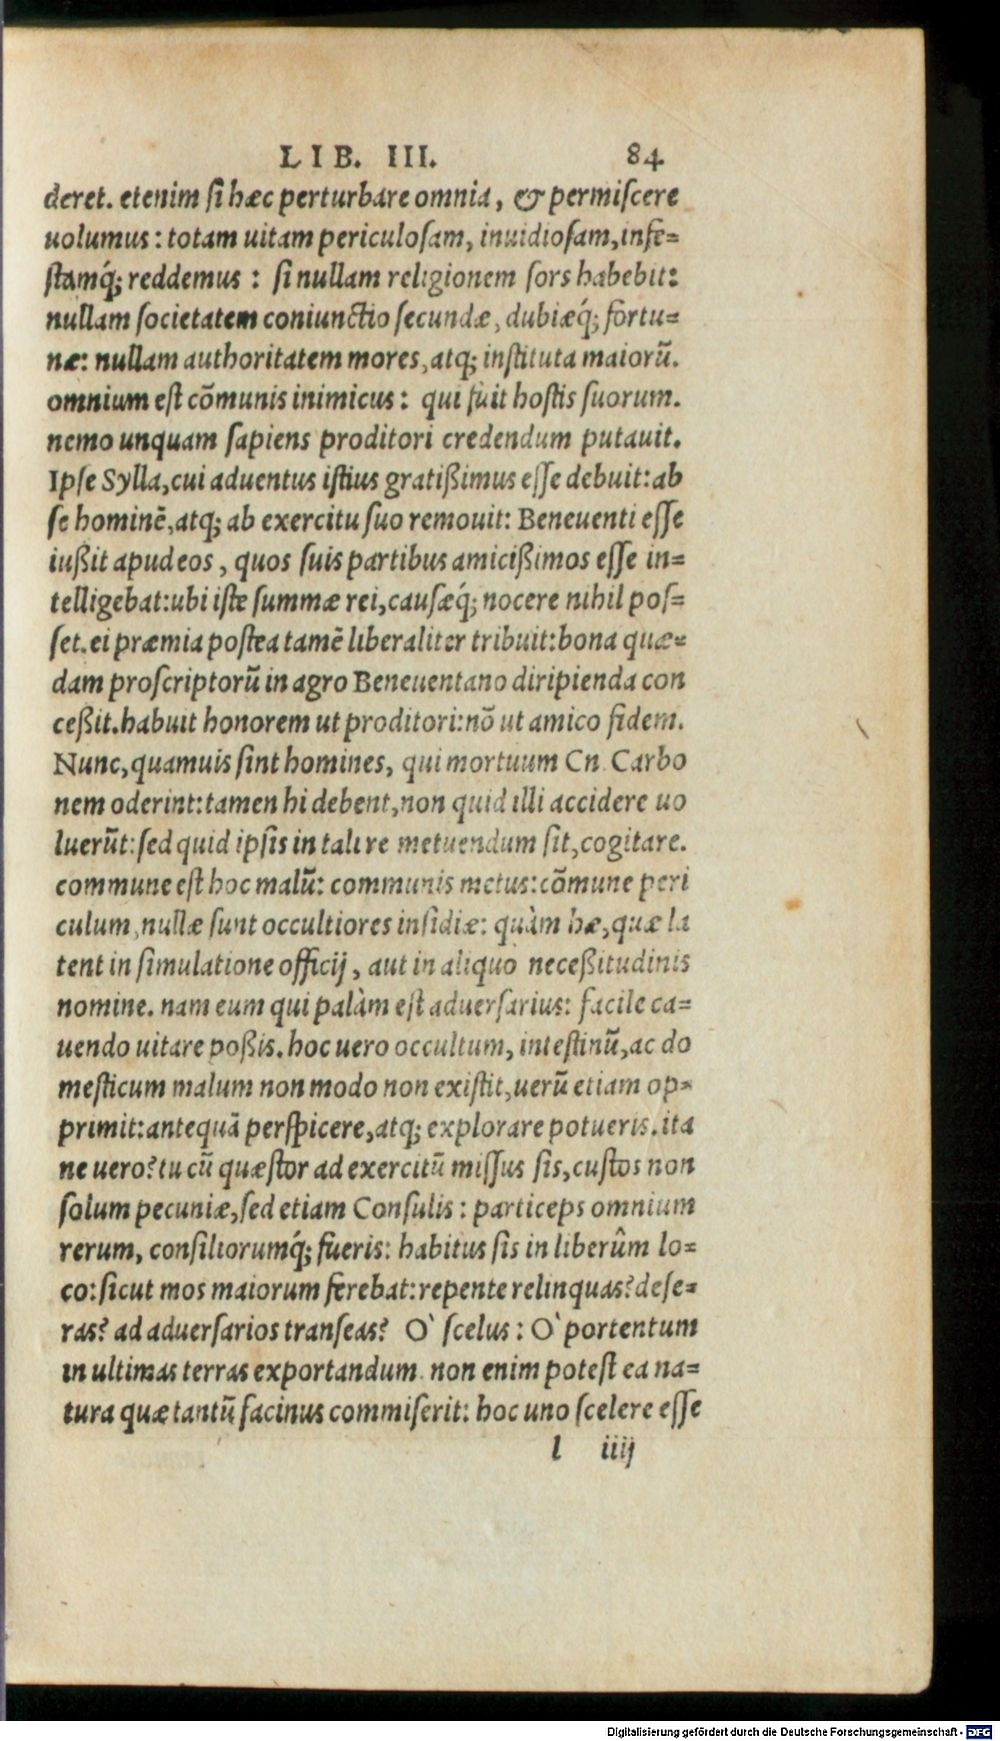 LIB. III. 84
deret. etenim si hæc perturbare omnia, & permiscere
uolumus: totam uitam periculosam, inuidiosam, infe=
stamq́; reddemus: si nullam religionem sors habebit:
nullam societatem coniunctio secundæ, dubiæq́; fortu=
næ: nullam authoritatem mores, atq; instituta maiorũ.
omnium est cõmunis inimicus: qui fuit hostis suorum.
nemo unquam sapiens proditori credendum putauit.
Ipse Sylla, cui aduentus istius gratißimus esse debuit: ab
se hominẽ, atq; ab exercitu suo remouit: Beneuenti esse
iußit apud eos, quos suis partibus amicißimos esse in=
telligebat: ubi iste summæ rei, causæq́; nocere nihil pos=
set. ei præmia postea tamẽ liberaliter tribuit: bona quæ=
dam proscriptorũ in agro Beneuentano diripienda con
ceßit. habuit honorem ut proditori: nõ ut amico fidem.
Nunc, quamuis sint homines, qui mortuum Cn. Carbo
nem oderint: tamen hi debent, non quid illi accidere uo
luerũt: sed quid ipsis in tali re metuendum sit, cogitare.
commune est hoc malũ: communis metus: cõmune peri
culum, nullæ sunt occultiores insidiæ: quàm hæ, quæ la
tent in simulatione officij, aut in aliquo neceßitudinis
nomine. nam eum qui palàm est aduersarius: facile ca=
uendo uitare poßis. hoc uero occultum, intestinũ, ac do
mesticum malum non modo non existit, uerũ etiam op=
primit: antequã perspicere, atq; explorare potueris. ita
ne uero? tu cũ quæstor ad exercitũ missus sis, custos non
solum pecuniæ, sed etiam Consulis: particeps omnium
rerum, consiliorumq́; fueris: habitus sis in liberûm lo=
co: sicut mos maiorum ferebat: repente relinquas? dese=
ras? ad aduersarios transeas? Ò scelus: Ò portentum
in ultimas terras exportandum. non enim potest ea na=
tura quæ tantũ facinus commiserit: hoc uno scelere esse
l iiij
Digitalisierung gefördert durch die Deutsche Forschungsgemeinschaft - DFG